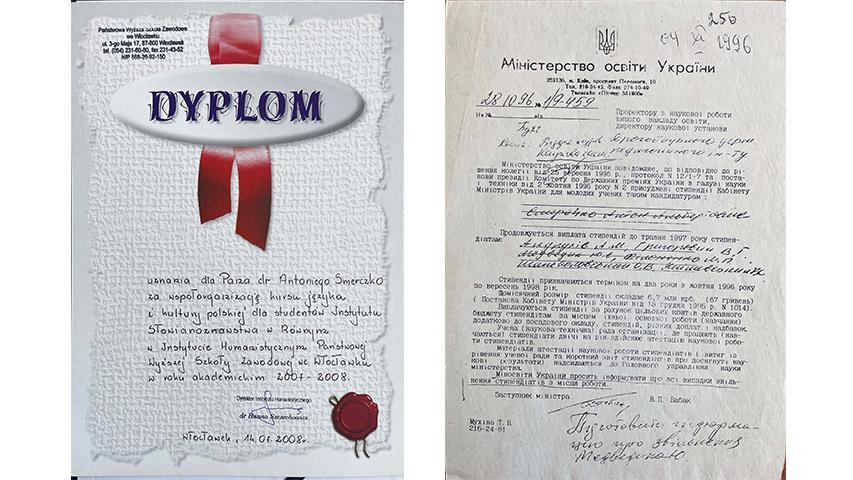 Państwowa Wyższa Szkoła Zawodowa
we Włocławku
ul. 3-go Maja 17, 87-800 Włocławek
tel. (054) 231-60-80, fax 231-43-52
NIP 888-26-92-150
DYPLOM
uznania dla Pana dr Antoniego Smerczko
za współorganizację kursu języka
i kultury polskiej dla studentów Instytutu
Słowianoznawstwa w Równym
w Instytucie Humanistycznym Państwowej
Wyższej Szkoły Zawodowej we Włocławku
w roku akademickim 2007-2008.
Dyrektor Instytutu Humanistycznego
dr Hanna Szczechowicz
Włocławek, 14.07.2008r.
256
04 XI 1996
Міністерство освіти України
252135, м. Київ, проспект Перемоги, 10
28.10.96 № 1/9-459
На № від
Проректору з наукової роботи
вищого закладу освіти,
директору наукової установи
педагогичного ін-ту
Міністерство освіти України повідомляє, що відповідно до рі-
шення колегії від 25 вересня 1996 р., протокол N 12/1-7 та поста-
нови президії Комітету по Державних преміях України в галузі науки
і техніки від 2 жовтня 1996 року N 2 присуджені стипендії Кабінету
Міністрів України для молодих учених таким кандидатурам:
Продовжується виплата стипендій до травня 1997 року стипен-
діатам: Андрусів А.М. Григорович В.Г.
Стипендії призначаються терміном на два роки з жовтня 1996 року
по вересень 1998 рік.
Щомісячний розмір стипендії складає 6,7 млн крб. (67 гривень)
( Постанова Кабінету Міністрів України від 18 грудня 1995 р. N 1014).
Виплачуються стипендії за рахунок цільових коштів державного
бюджету стипендіатам за місцем їхньої основної роботи (навчання)
додатково до посадового окладу, стипендій, різних доплат і надбавок.
Учена (науково-технічна) рада організації, де працюють (навча-
ються) стипендіати раз на рік здійснює атестацію наукової робо-
ти стипендіатів.
Матеріали атестації наукової роботи стипендіатів і витяг із
рішення ученої ради та короткий звіт стипендіатів про проведену нау-
кові (результати) надсилаються до Головного управління науки
міністерства.
Міносвіти України просить інформувати про всі випадки звіль-
нення стипендіатів з місця роботи.
Заступник міністра В.П. Бабак
Мухіна Т.В.
216-24-81
Підготовити інформа-
цію про звільнення